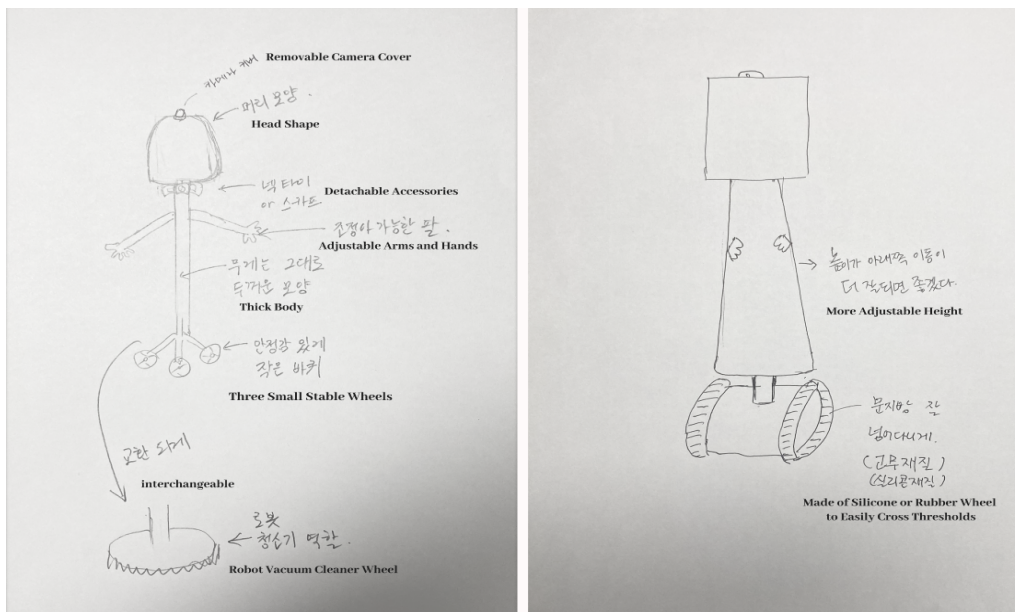 카메라 커버
Removable Camera Cover
머리 모양.
Head Shape
넥타이
or 스카프
Detachable Accessories
조정이 가능한 팔.
Adjustable Arms and Hands
무게는 그대로
두꺼운 모양
Thick Body
안정감 있게
작은 바퀴
Three Small Stable Wheels
교환 되게
interchangeable
로봇
청소기 역할.
Robot Vacuum Cleaner Wheel
높이가 아래쪽 이동이
더 잘되면 좋겠다.
More Adjustable Height
문지방 잘
넘어다니게.
(고무재질)
(실리콘재질)
Made of Silicone or Rubber Wheel
to Easily Cross Thresholds